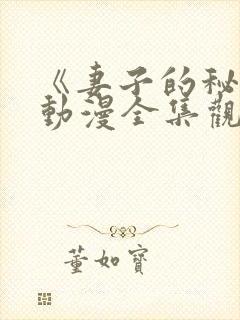 《妻子的秘
動漫全集觀
董如寶